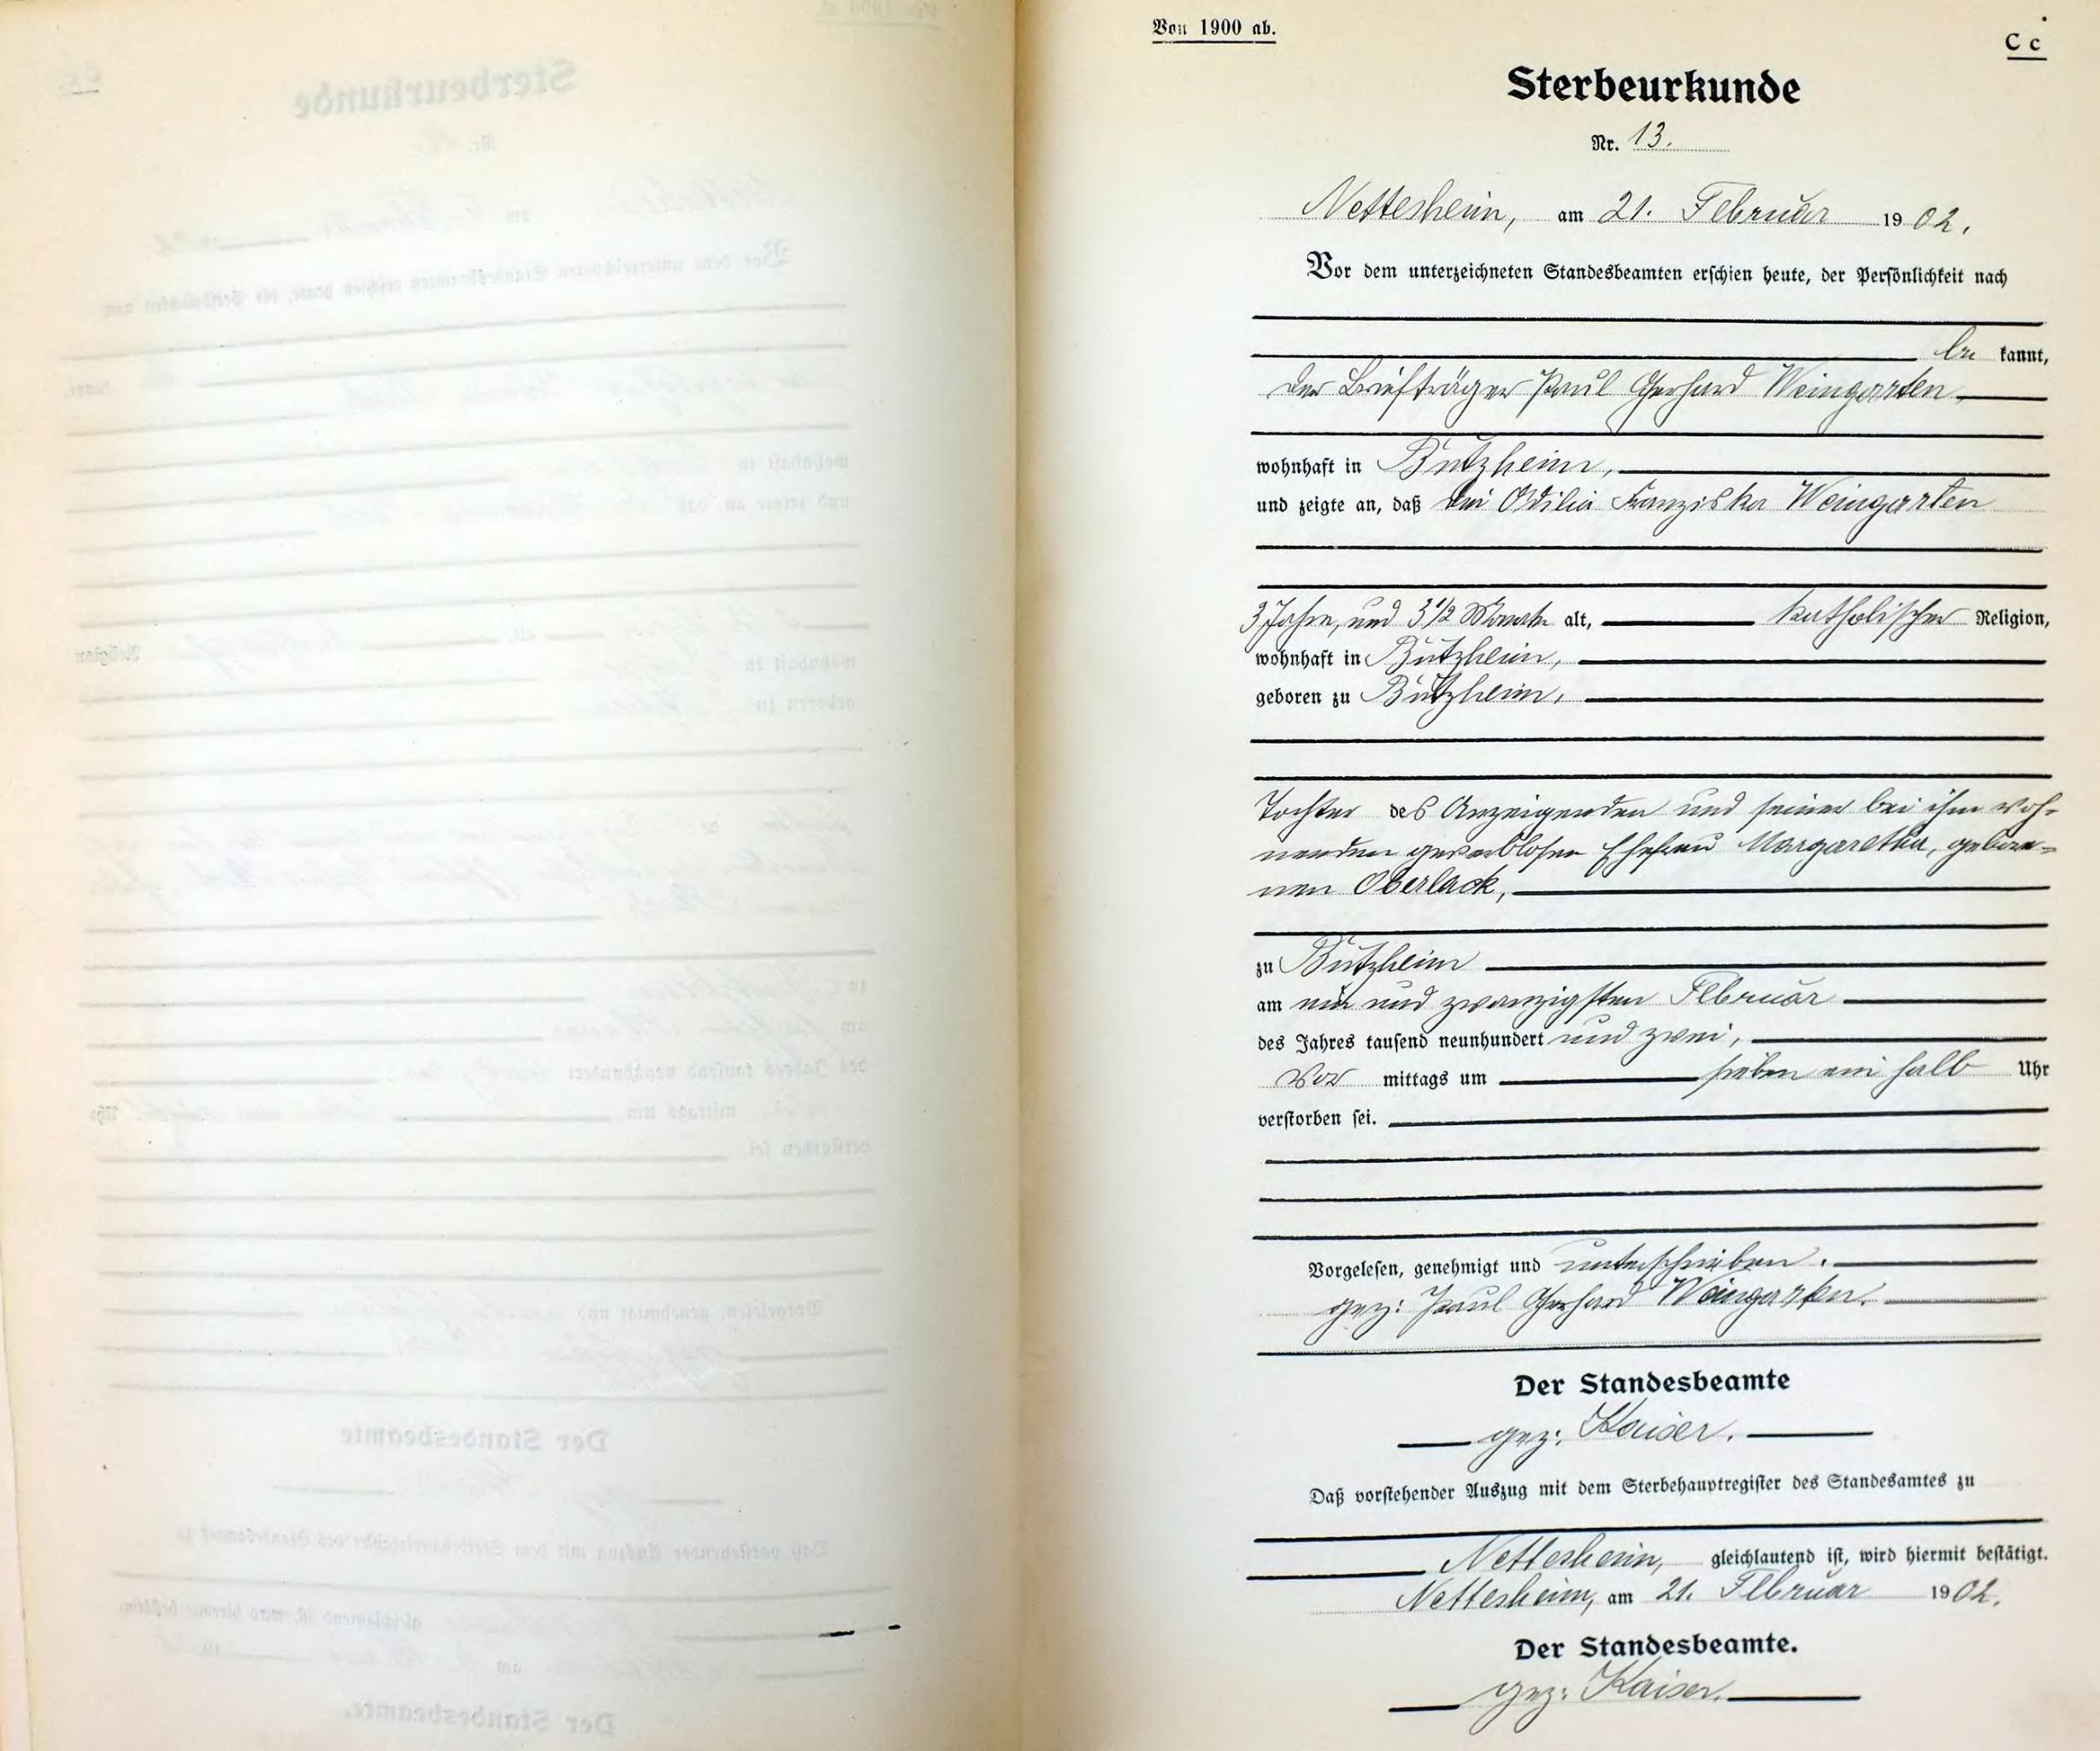 Von 1900 ab.
C c
Sterbeurkunde
Nr. 13.
Nettesheim, am 21. Februar 1902.
Vor dem unterzeichneten Standesbeamten erschien heute, der Persönlichkeit nach
be kannt,
der Briefträger Paul Gerhard Weingarten
wohnhaft in Butzheim,
und zeigte an, daß die Odilia Franziska Weingarten
3 Jahre, und 3 1/2 Monate alt, katholischer Religion,
wohnhaft in Butzheim,
geboren zu Butzheim,
Tochter des Anzeigenden und seiner bei ihm woh-
nenden gewerblosen Ehefrau Margaretha, gebore-
nen Oberlack,
zu Butzheim
am ein und zwanzigsten Februar
des Jahres tausend neunhundert und zwei,
Vor mittags um sieben ein halb Uhr
verstorben sei.
Vorgelesen, genehmigt und unterschrieben.
gez: Paul Gerhard Weingarten.
Der Standesbeamte
gez: Kaiser.
Daß vorstehender Auszug mit dem Sterbehauptregister des Standesamtes zu
Nettesheim, gleichlautend ist, wird hiermit bestätigt.
Nettesheim, am 21. Februar 1902.
Der Standesbeamte.
gez: Kaiser.